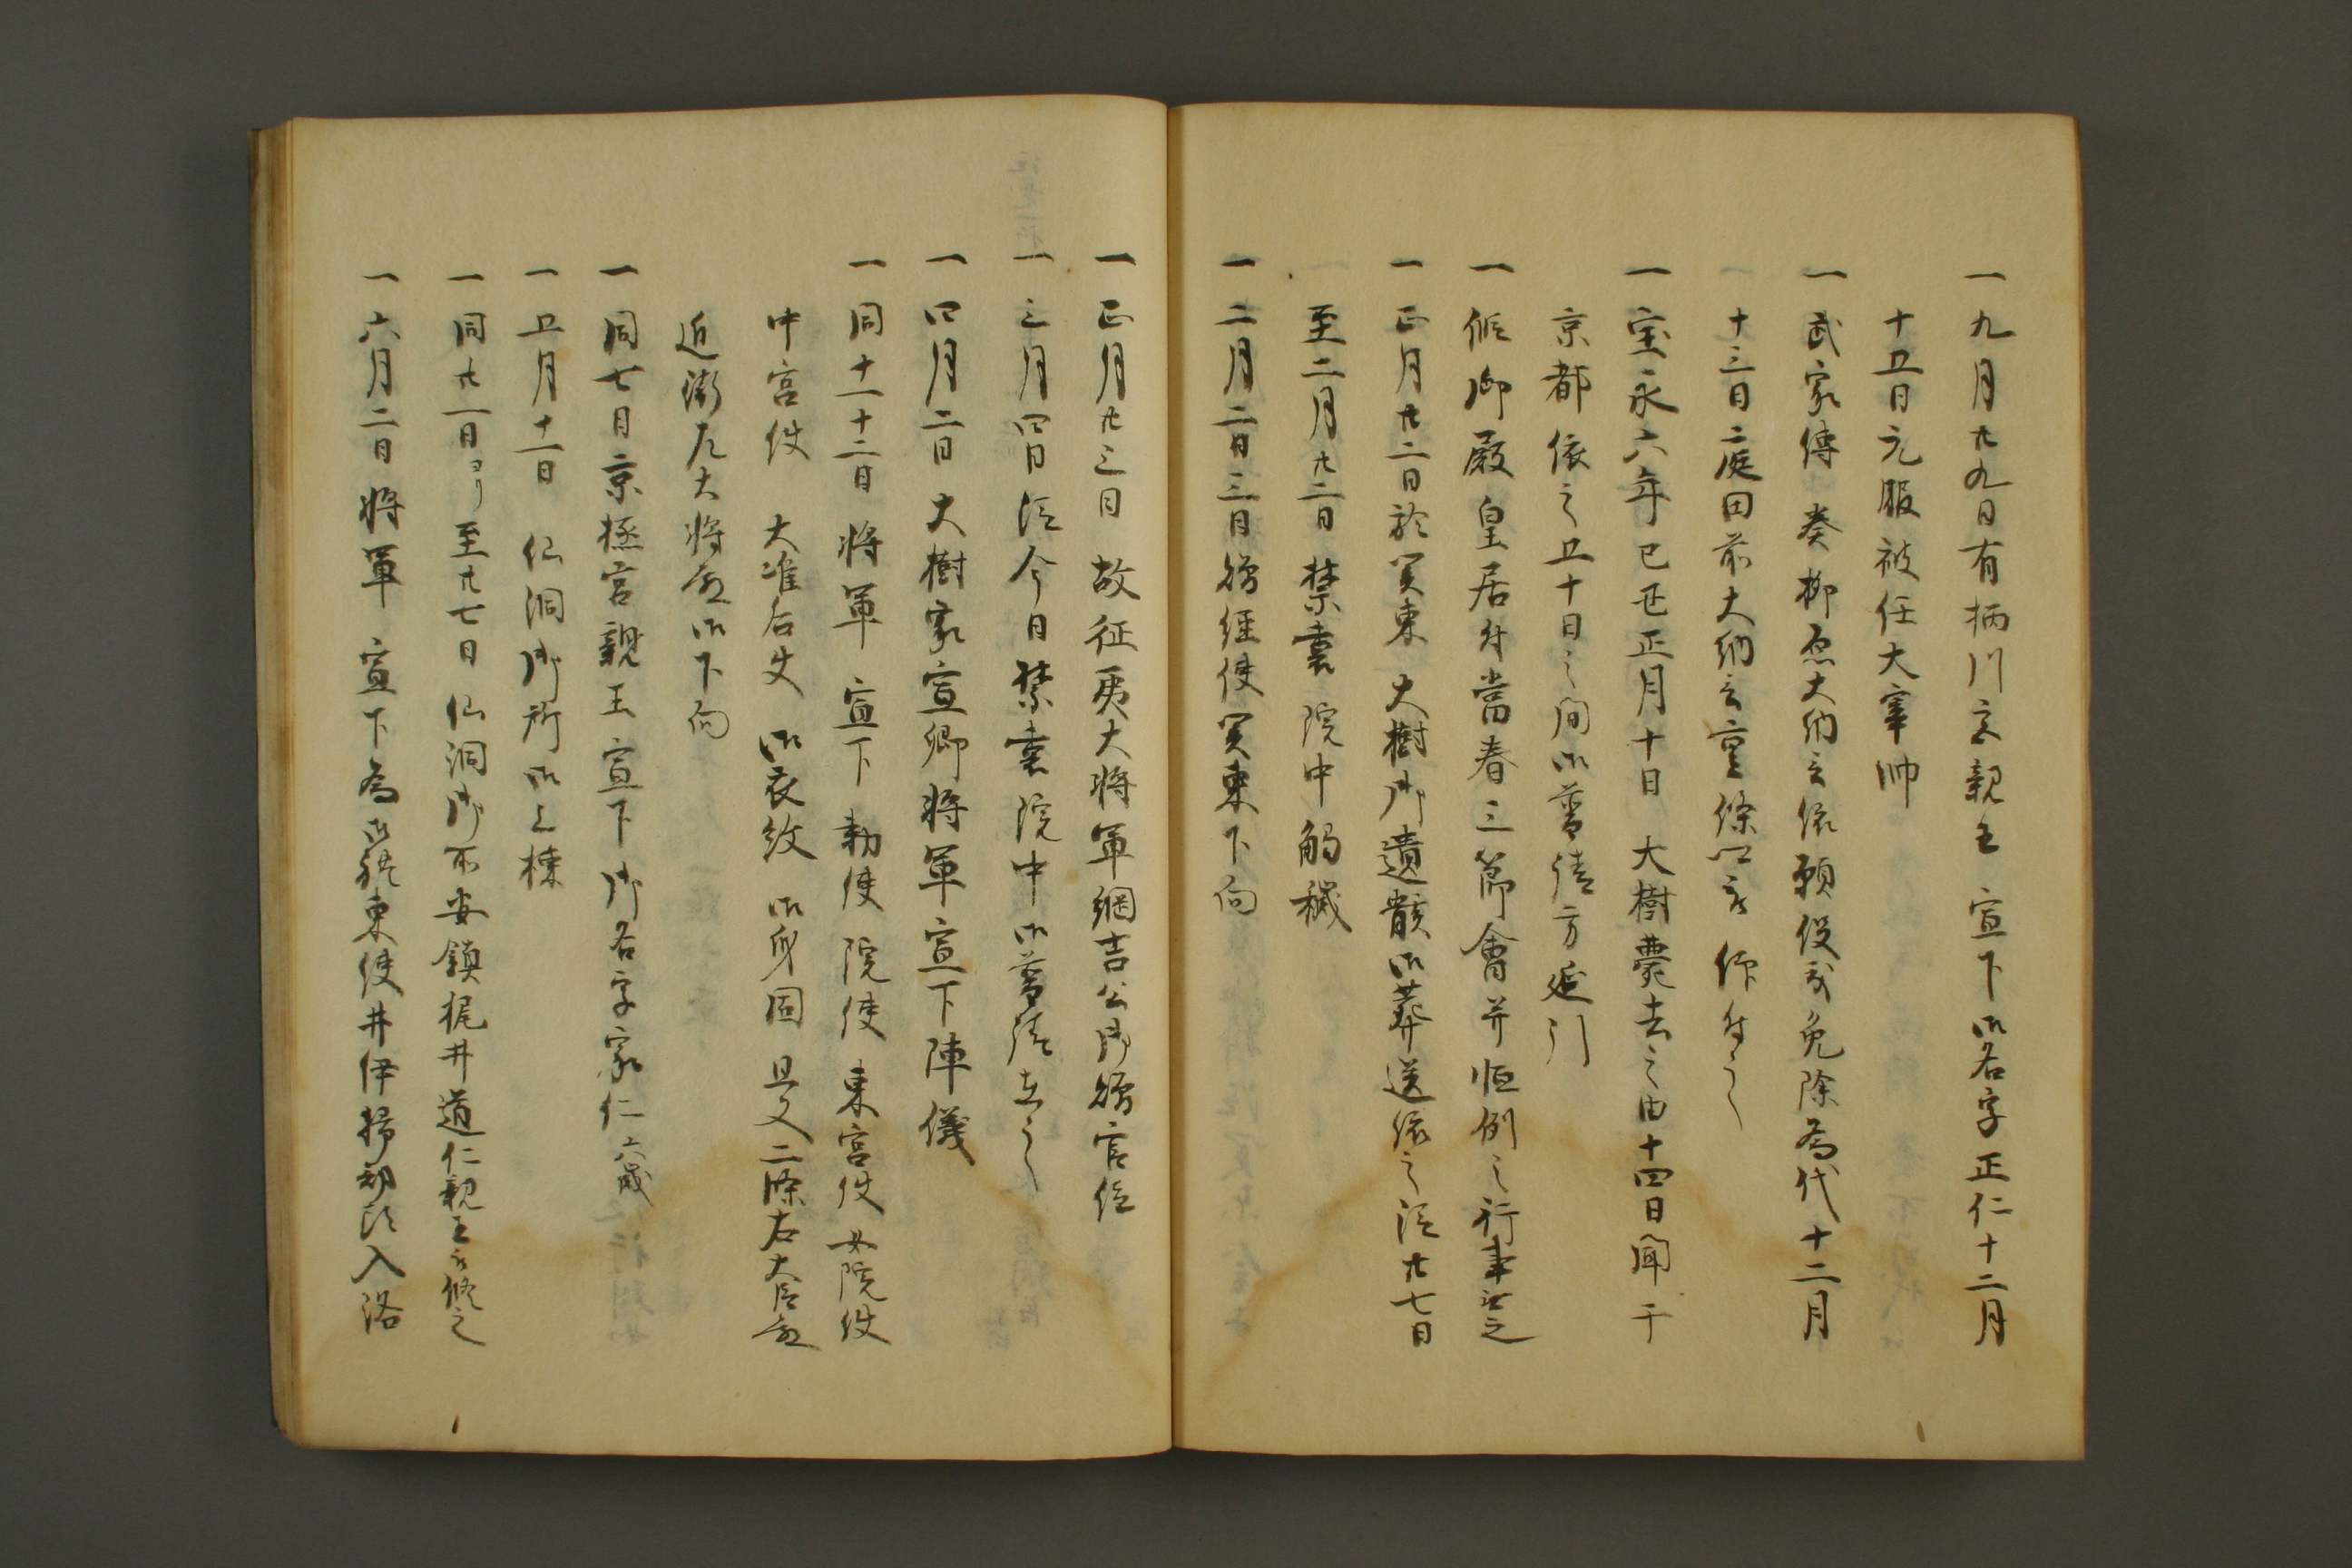 一九月廿九日有栖川宮親王　宣下御名字正仁十二月
十五日元服被任大宰帥
一武家傳　奏柳原大納言依願役義免除為代十二月
十三日庭田前大納言重條卿被　仰付之
一宝永六年己丑正月十日　大樹薨去之由十四日聞于
京都依之五十日之間御普請方延引
一假御殿皇居付當春三節會并恒例之行事無之
一正月廿二日於関東　大樹御遺骸御葬送依之従廿七日
至二月廿二日　禁裏院中觸穢
一二月二日三日贈經使関東下向
一正月廿三日　故征夷大将軍綱吉公御贈官位
一三月四日従今日禁裏院中御普請在之
一四月二日　大樹家宣卿将軍宣下陣儀
一同十一十二日　将軍　宣下　勅使　院使　東宮使　女院使
中宮使　大准后使　御衣紋　御身固　且又二條右大臣殿
近衛左大将殿御下向
一同七日京極宮親王　宣下　御名字家仁六歳
一五月十一日　仙洞御所御上棟
一同廿一日ヨリ至廿七日　仙洞御所安鎮梶井道仁親王被修之
一六月二日将軍　宣下為御禮東使井伊掃部頭入洛